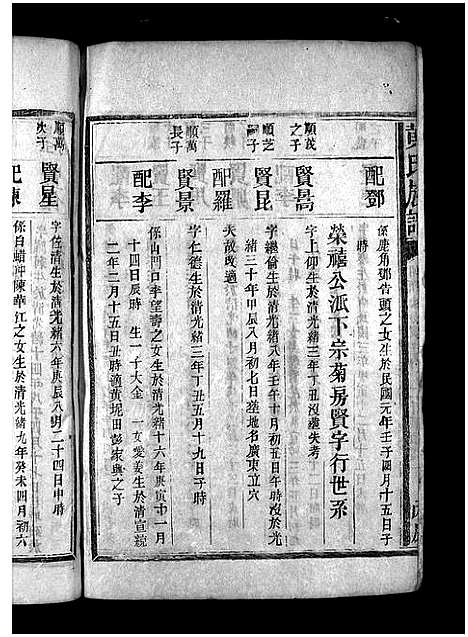 黄氏族譜
配鄧
係鹿角鄧苔頭之女生於民國元年壬子四月十五日子
時
榮禧公派下宗菊房賢字行世系
順茂之子
賢暠
字上仰生於清光緒三年丁丑沒縂失考
順芝嗣子
賢昆
字繼倫生於清光緒八年壬午十月初五日午時沒於光
緒三十年甲辰八月初七日塟地名廣東立穴
配羅
失故改適
順萬長子
賢景
字仁德生於清光緒三年丁丑五月十九日子時
配李
係山門口李望壽之女生於清光緒十六年庚寅十一月
十四日辰時 生一子大金 一女愛姜生於清宣統
二年二月十五日丑時適黄坭田彭家興之子
順萬次子
賢星
字佐清生於清光緒六年庚辰八月二十四日申時
配陳
係白蜡冲陳華江之女生於清光緒九年癸未四月初六